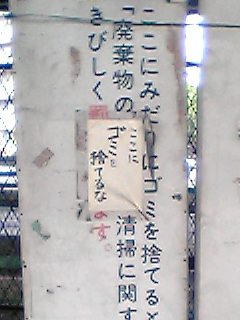 ここにみだりにゴミを捨てると
「廃棄物の 清掃に関す
きびしく罰 ます。
ここに
ゴミを
捨てるな